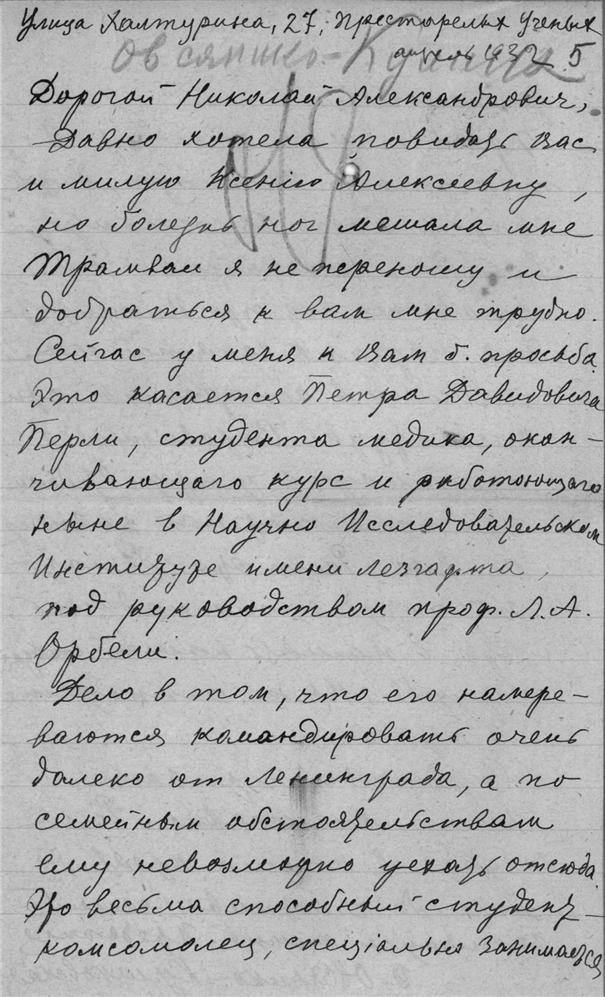 Улица Халтурина, 27, Престарелых Ученых
Овсянико-Кулик
апрель 1932. 5
Дорогой Николай Александрович,
Давно хотела повидать вас
и милую Ксенію Алексеевну,
но болезнь ног мешала мне
Трамваи я не переношу и
добраться к вам мне трудно.
Сейчас у меня к Вам б. просьба.
Это касается Петра Давидовича
Перли, студента медика, окан-
чивающего курс и работающего
ныне в Научно Исследовательском
Институте имени Лезгафта,
под руководством проф. Л. А.
Орбели.
Дело в том, что его намере-
ваются командировать очень
далеко от Ленинграда, а по
семейным обстоятельствам
ему невозможно уехать отсюда.
Это весьма способный студент-
комсомолец, спеціально занимается